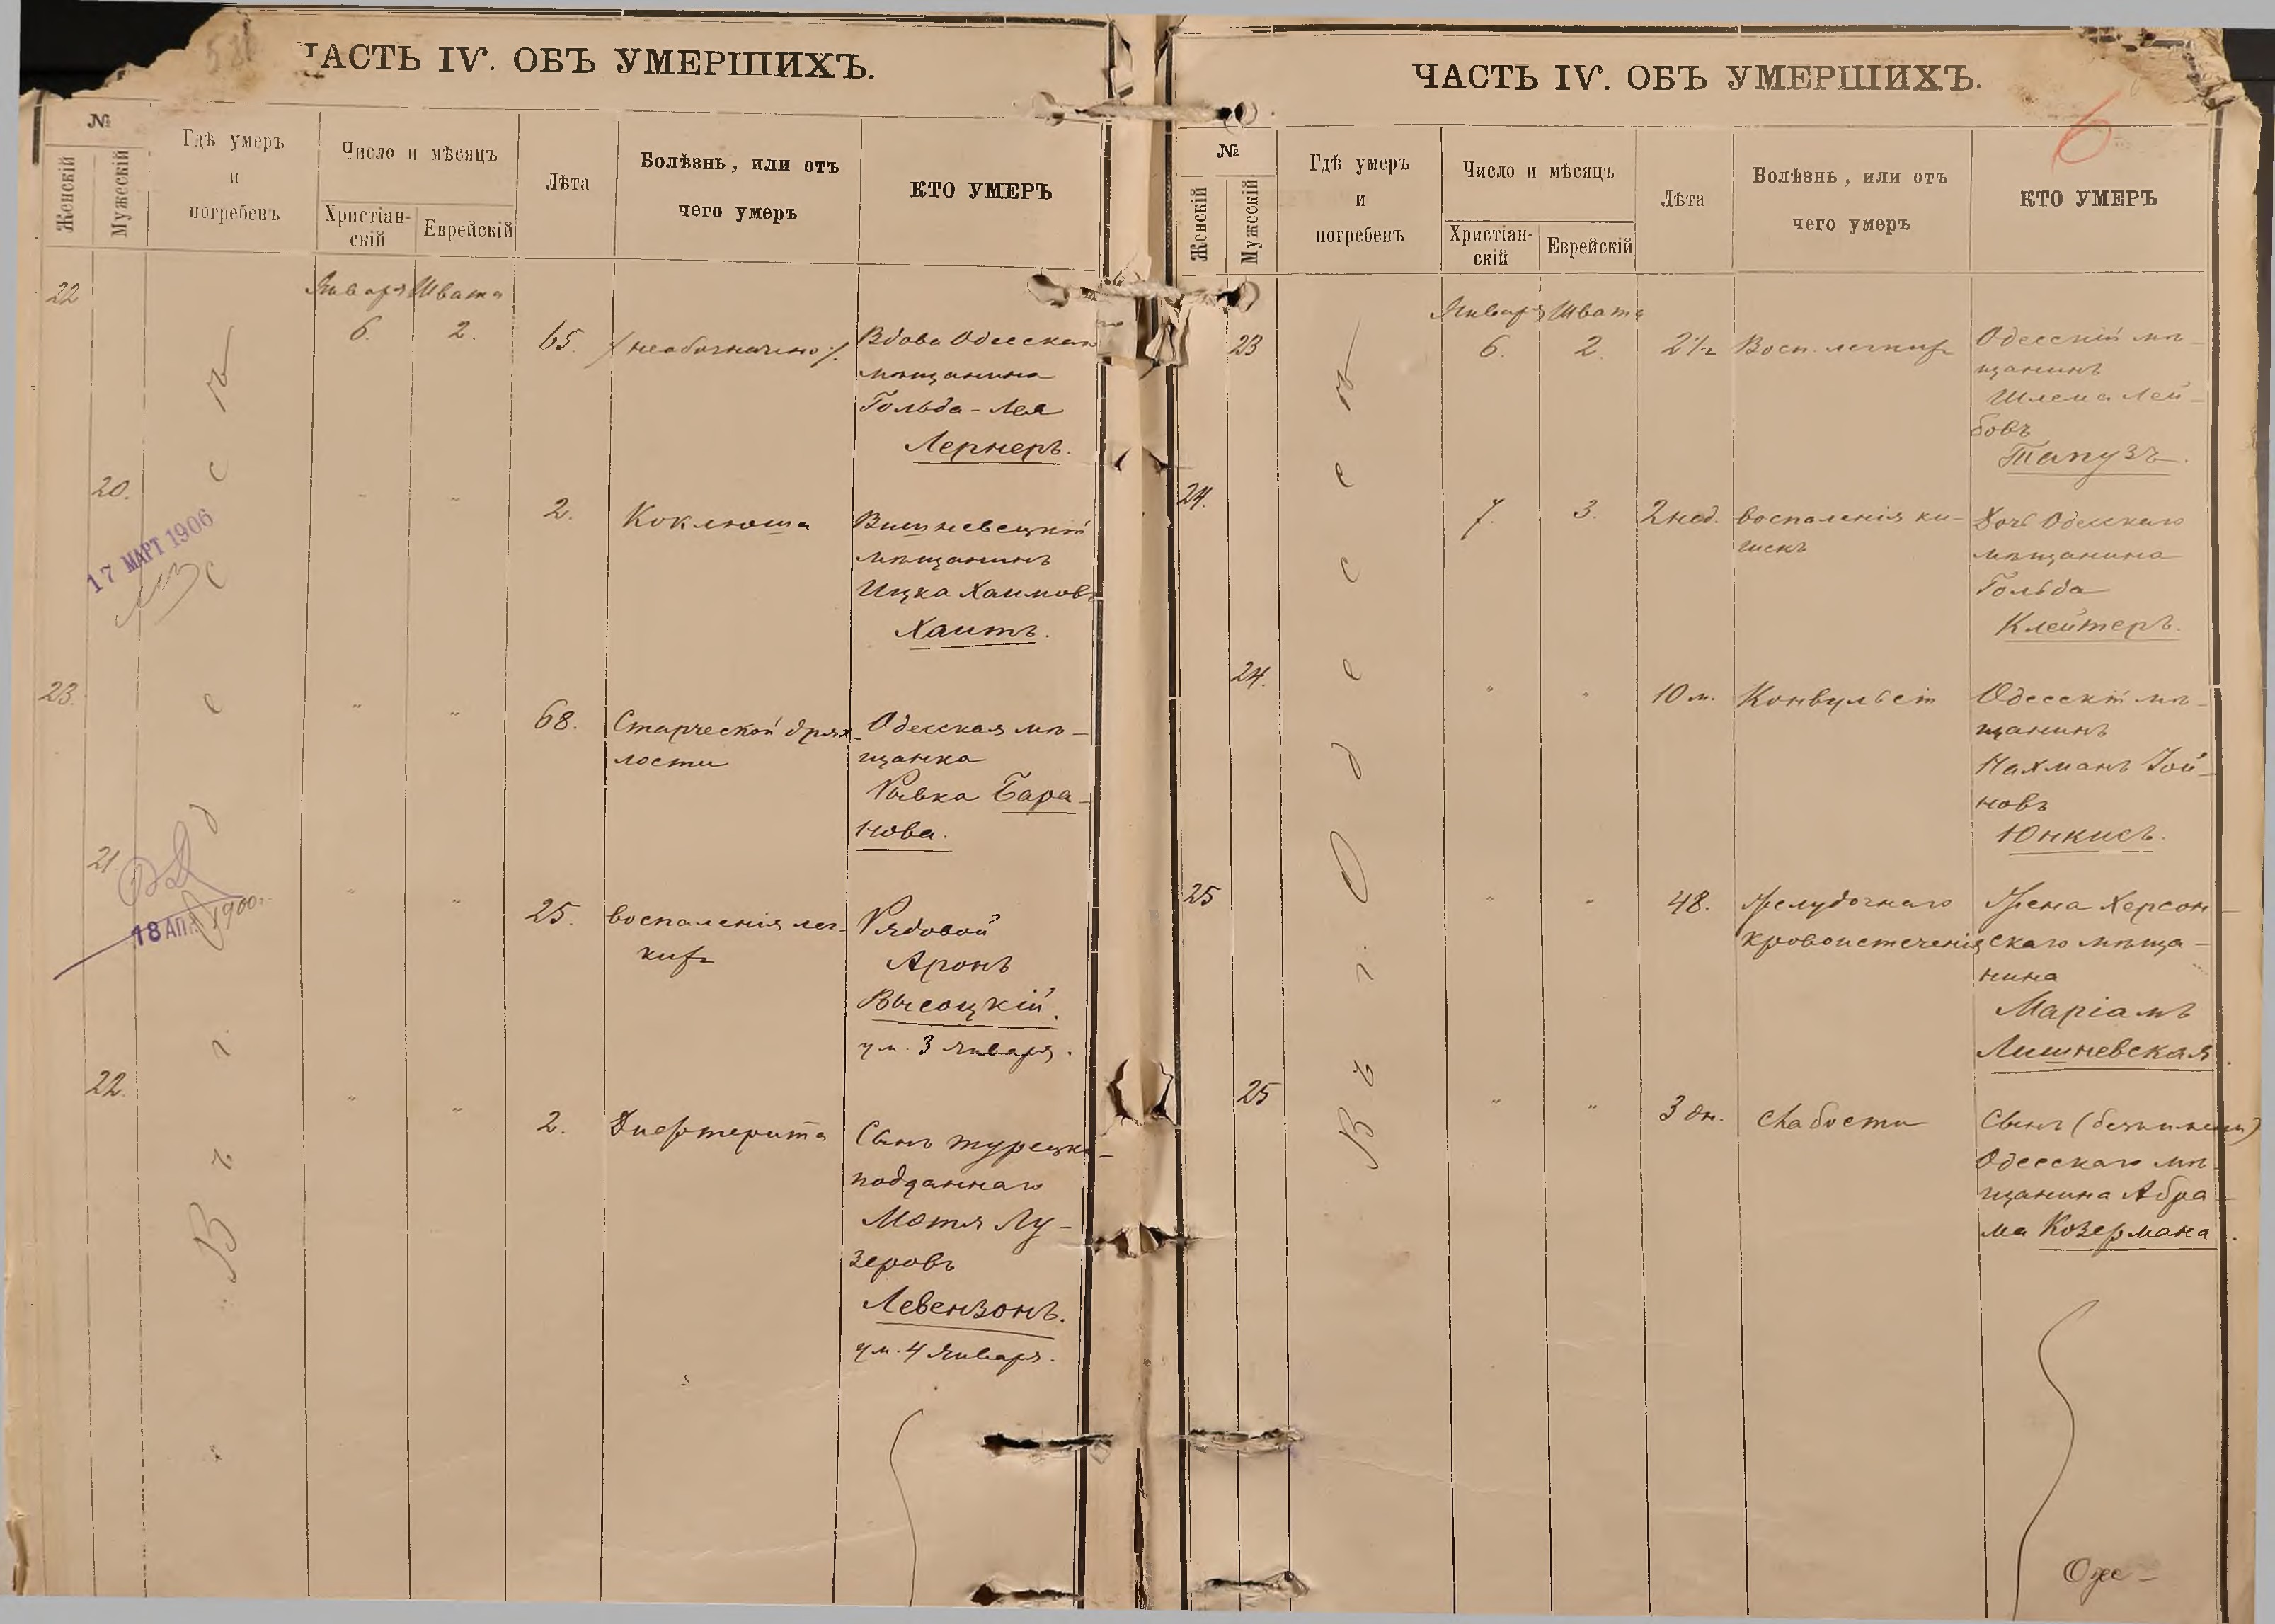 ЧАСТЬ IV. ОБЪ УМЕРШИХЪ.
№
Женскій
Мужескій
Гдѣ умеръ
и
погребенъ
Число и мѣсяцъ
Христіан-
скій
Еврейскій
Лѣта
Болѣзнь, или отъ
чего умеръ
КТО УМЕРЪ
Въ г. Одессѣ
22
Января Швата
6. 2. 65. /:необозначено:/ Вдова Одесскаго
мѣщанина
Гольда-Лея
Лернеръ.
20.
" " 2. Коклюша Вишневецкій
мѣщанинъ
Ицка Хаимовъ
Хаитъ.
17 МАРТ 1906
23.
" " 68. Старческой дрях- Одесская мѣ-
лости щанка
Рывка Бара-
нова.
21.
18 АПР 1900
" " 25. воспаленія лег- Рядовой
кихъ Аронъ
Высоцкій.
ум. 3 Января.
22.
" " 2. Дифтерита Сынъ турецко-
подданнаго
Мотя Лу-
зеровъ
Левензонъ.
ум. 4 Января.
ЧАСТЬ IV. ОБЪ УМЕРШИХЪ.
6
№
Женскій
Мужескій
Гдѣ умеръ
и
погребенъ
Число и мѣсяцъ
Христіан-
скій
Еврейскій
Лѣта
Болѣзнь, или отъ
чего умеръ
КТО УМЕРЪ
Въ г. Одессѣ
Января Швата
23 6. 2. 2½ Восп. легкихъ Одесскій мѣ-
щанинъ
Шлема Лей-
бовъ
Тапузъ.
24. 7. 3. 2 нед. воспаленія ки- Дочь Одесскаго
шекъ мѣщанина
Гольда
Клейтеръ.
24. " " 10 м. Конвульсіи Одесскій мѣ-
щанинъ
Нахманъ Іой-
новъ
Юнкисъ.
25 " " 48. Желудочнаго Жена Херсон-
кровоистеченія скаго мѣща-
нина
Маріамъ
Лишневская.
25 " " 3 дн. слабости Сынъ (безъ имени)
Одесскаго мѣ-
щанина Абра-
ма Козермана.
Одес-